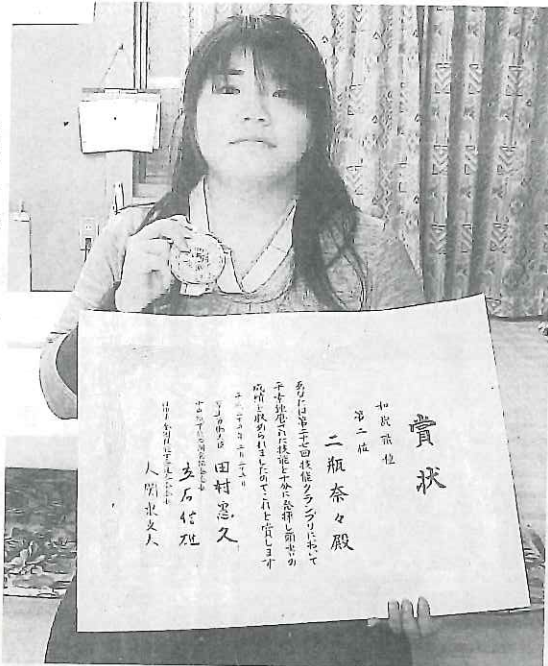 賞状
和裁職種
第二位
二瓶奈々殿
あなたは第二十七回技能グランプリにおいて
平素錬磨された技能を十分に発揮し頭書の
成績を収められましたのでこれを賞します
田村憲久
立石信雄